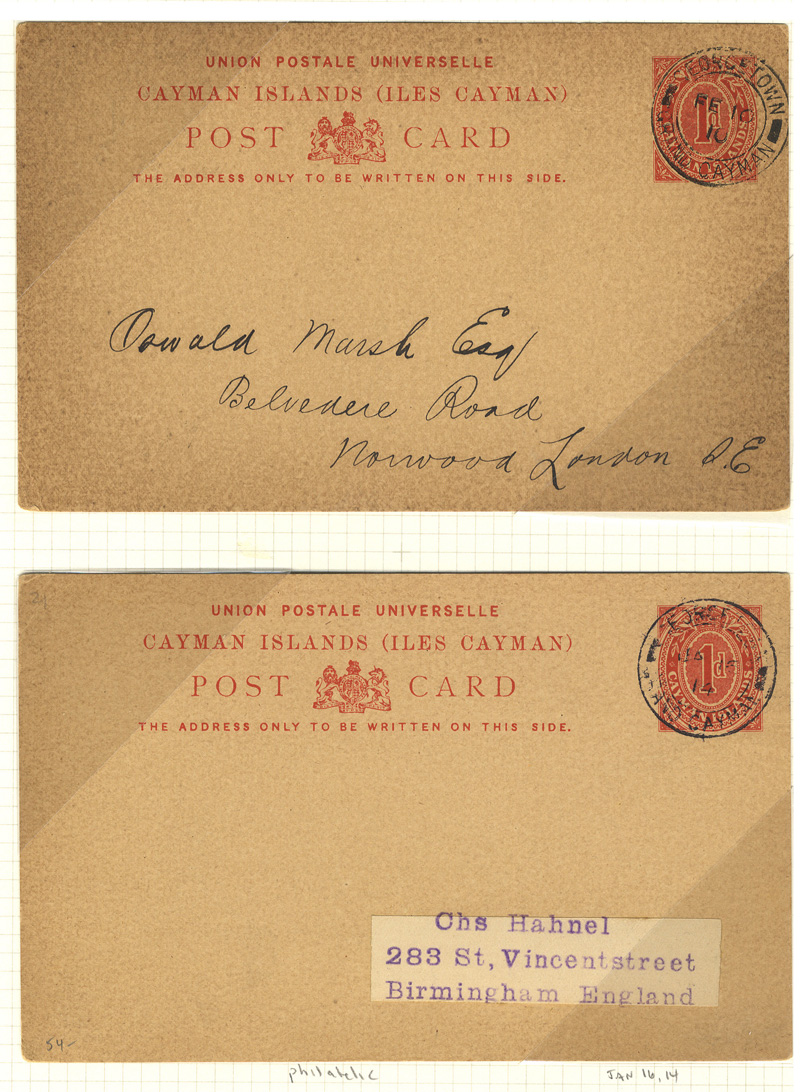 UNION POSTALE UNIVERSELLE
CAYMAN ISLANDS (ILES CAYMAN)
POST CARD
THE ADDRESS ONLY TO BE WRITTEN ON THIS SIDE.
GEORGETOWN
FE 10
10
GRAND CAYMAN
1d
CAYMAN ISLANDS
Oswald Marsh Esq
Belvedere Road
Norwood London S.E
24
UNION POSTALE UNIVERSELLE
CAYMAN ISLANDS (ILES CAYMAN)
POST CARD
THE ADDRESS ONLY TO BE WRITTEN ON THIS SIDE.
JA 16
14
GRAND CAYMAN
1d
CAYMAN ISLANDS
Chs Hahnel
283 St, Vincentstreet
Birmingham England
54-
philatelic JAN 16, 14